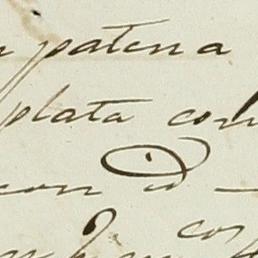 patena
plata con
con id
cos